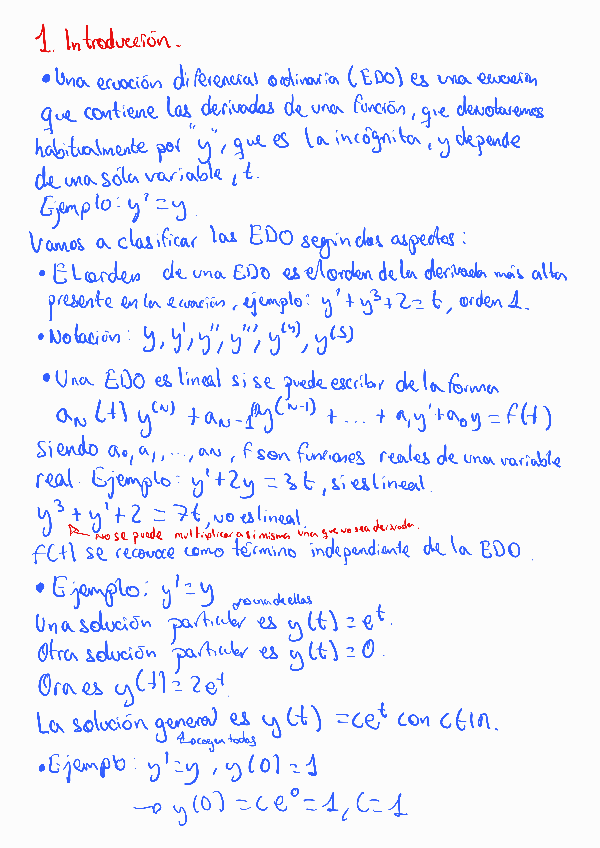 1. Introducción.
• Una ecuación diferencial ordinaria (EDO) es una ecuación
que contiene las derivadas de una función, que denotaremos
habitualmente por "y", que es la incógnita, y depende
de una sóla variable, t.
Ejemplo: y' = y.
Vamos a clasificar las EDO según dos aspectos:
• El orden de una EDO es el orden de la derivada más alta
presente en la ecuación, ejemplo: y' + y³ + 2 = t, orden 1.
• Notación: y, y', y'', y''', y⁽⁴⁾, y⁽⁵⁾
• Una EDO es lineal si se puede escribir de la forma
aN (t) y⁽ᴺ⁾ + aN-1 (t) y⁽ᴺ⁻¹⁾ + ... + a₁y' + a₀y = f(t)
Siendo a₀, a₁, ..., aN, f son funciones reales de una variable
real. Ejemplo: y' + 2y = 3t, si es lineal.
y³ + y' + 2 = 7t, no es lineal.
No se puede multiplicar a si misma una que no sea derivada.
f(t) se reconoce como término independiente de la EDO.
• Ejemplo: y' = y
es una de ellas
Una solución particular es y(t) = eᵗ.
Otra solución particular es y(t) = 0.
Ora es y(t) = 2eᵗ
La solución general es y(t) = ceᵗ con C∈ℝ.
acogen todas
• Ejemplo: y' = y, y(0) = 1
→ y(0) = C e⁰ = 1, C = 1